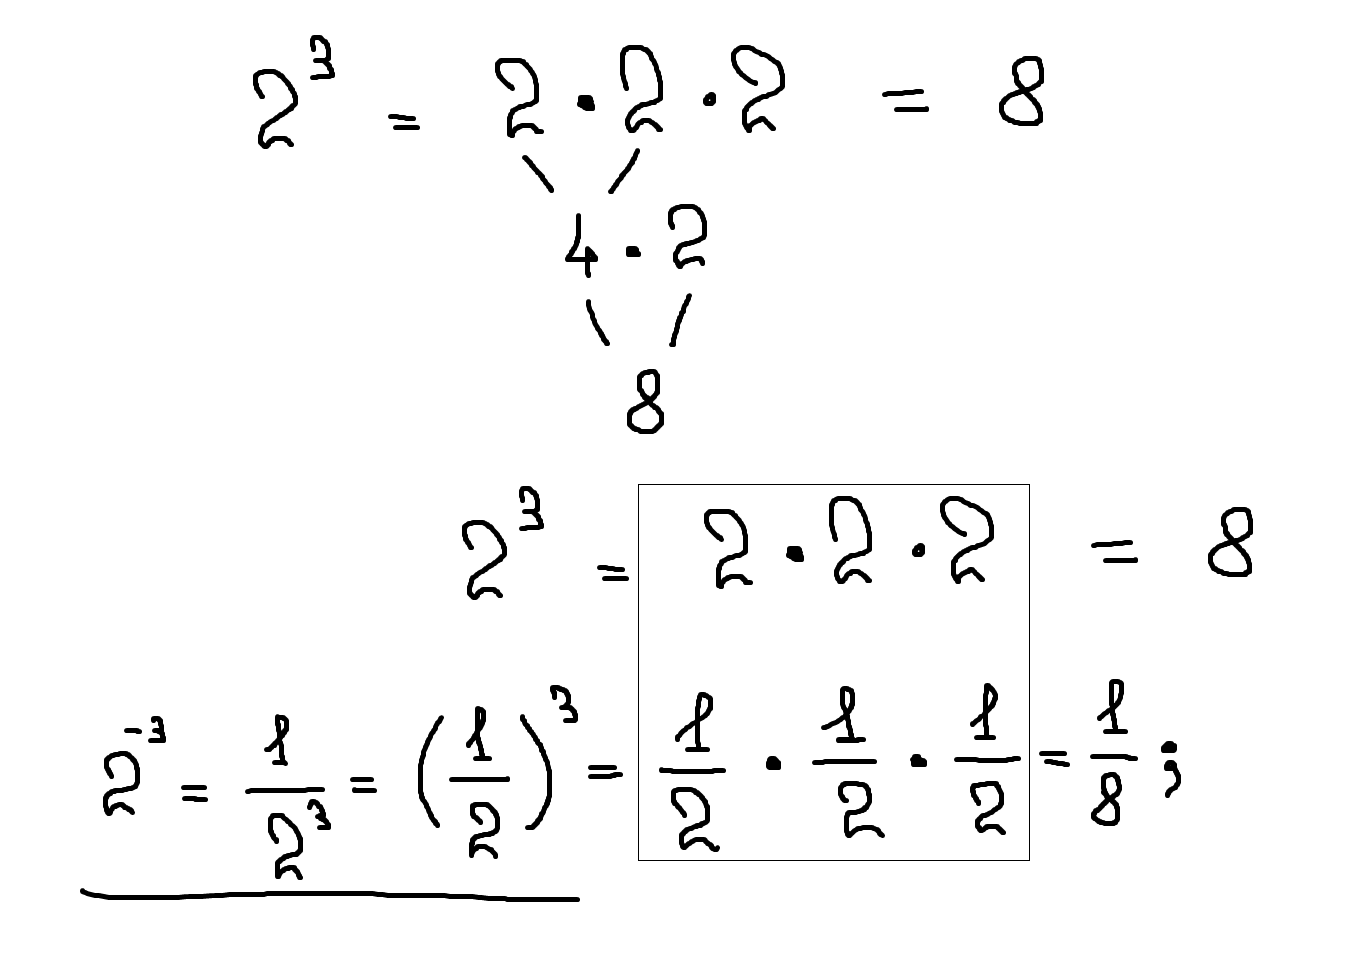 2³ = 2 · 2 · 2 = 8
4 · 2
8
2³ = 2 · 2 · 2 = 8
2⁻³ = 1/2³ = (1/2)³ = 1/2 · 1/2 · 1/2 = 1/8 ;